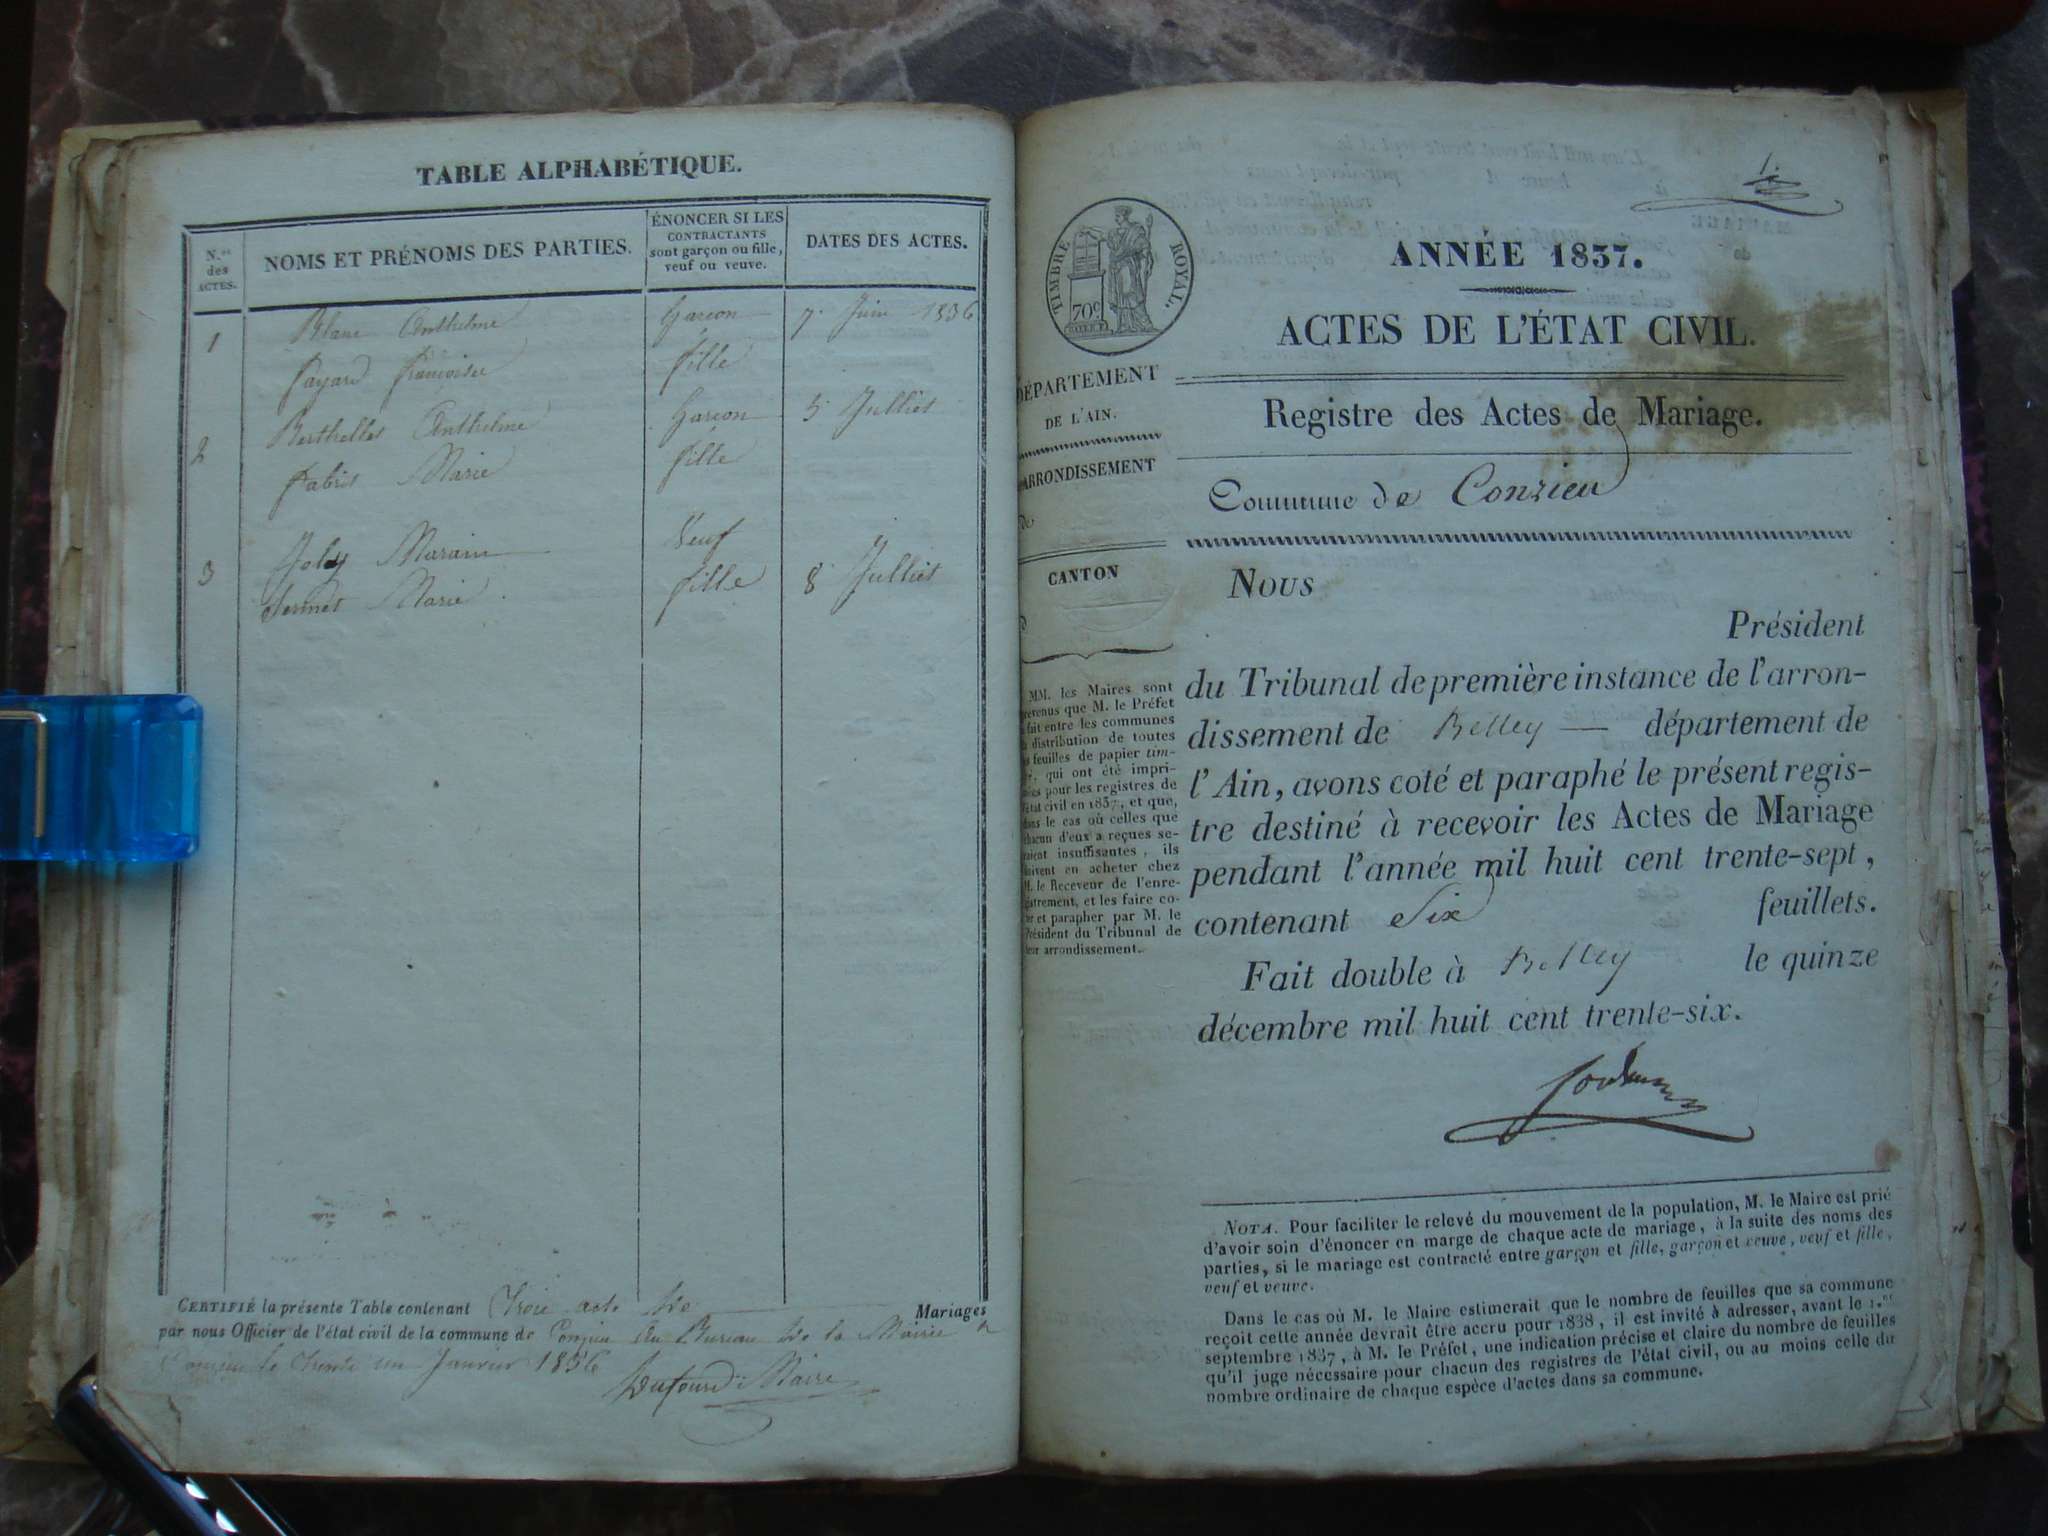 TABLE ALPHABÉTIQUE.
N.os des ACTES.
NOMS ET PRÉNOMS DES PARTIES.
ÉNONCER SI LES
CONTRACTANTS
sont garçon ou fille,
veuf ou veuve.
DATES DES ACTES.
1 Blanc Anthelme Garcon 7 Juin 1836
Payard francoise fille
2 Berthellet Anthelme Garcon 5 Julliet
fabrit Marie fille
3 Joly Marain Veuf
Sermet Marie fille 8 Julliet
CERTIFIÉ la présente Table contenant Trois acte de Mariages
par nous Officier de l'état civil de la commune de Conzieu Au Bureau de la Mairie a
Conzieu le trente un Janvier 1836
Dufourd Maire
1
TIMBRE ROYAL.
70c
ANNÉE 1837.
ACTES DE L'ÉTAT CIVIL.
DÉPARTEMENT
DE L'AIN.
Registre des Actes de Mariage.
ARRONDISSEMENT
de
Commune de Conzieu
CANTON
MM. les Maires sont
prévenus que M. le Préfet
a fait entre les communes
la distribution de toutes
les feuilles de papier tim-
bré, qui ont été impri-
mées pour les registres de
l'état civil en 1837, et que,
dans le cas où celles que
chacun d'eux a reçues se-
raient insuffisantes, ils
doivent en acheter chez
M. le Receveur de l'enre-
gistrement, et les faire co-
ter et parapher par M. le
Président du Tribunal de
leur arrondissement.
Nous
Président
du Tribunal de première instance de l'arron-
dissement de Belley — département de
l'Ain, avons coté et paraphé le présent regis-
tre destiné à recevoir les Actes de Mariage
pendant l'année mil huit cent trente-sept,
contenant Six feuillets.
Fait double à Belley le quinze
décembre mil huit cent trente-six.
NOTA. Pour faciliter le relevé du mouvement de la population, M. le Maire est prié
d'avoir soin d'énoncer en marge de chaque acte de mariage, à la suite des noms des
parties, si le mariage est contracté entre garçon et fille, garçon et veuve, veuf et fille,
veuf et veuve.
Dans le cas où M. le Maire estimerait que le nombre de feuilles que sa commune
reçoit cette année devrait être accru pour 1838, il est invité à adresser, avant le 1.er
septembre 1837, à M. le Préfet, une indication précise et claire du nombre de feuilles
qu'il juge nécessaire pour chacun des registres de l'état civil, ou au moins celle du
nombre ordinaire de chaque espèce d'actes dans sa commune.